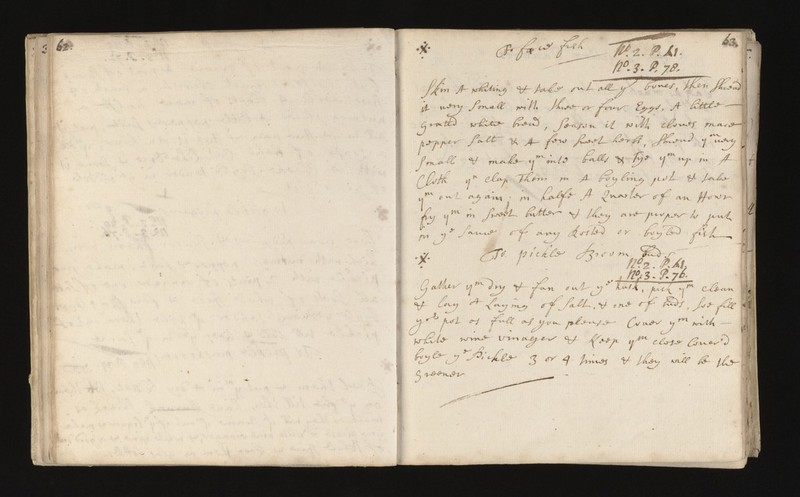 62.
63.
To force fish
No. 2. P. 41.
No. 3. P. 78.
Skin A whiting & take out all ye bones, then Shread
it very Small with three or four Eggs, A little
grated white bread, Season it with cloves mace
pepper Salt & A few sweet herbs, Shread ym very
Small & make ym into balls & tye ym up in A
Cloth yn clap them in A boyling pot & take
ym out again, in halfe A Quarter of an Hour
fry ym in Sweet butter & they are proper to put
in ye Sauce of any Rosted or boyled fish
To pickle Broom Buds
No. 2. P. 41.
No. 3. P. 76.
Gather ym dry & fan out ye husk, pick ym clean
& lay A Laying of Salt, & one of buds, Soe fill
yor pot as full as you please Cover ym with
white wine vinager & Keep ym close Cover'd
boyle ye Pickle 3 or 4 times & they will be the
Greener